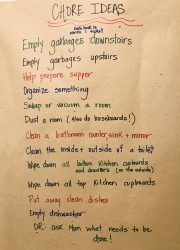 CHORE IDEAS
Empty garbages downstairs
Empty garbages upstairs
Help prepare supper
Organize something
Sweep or vacuum a room
Dust a room (Also do baseboards!)
Clean a bathroom counter, sink + mirror
Clean the inside + outside of a toilet
Wipe down all bottom kitchen cupboards
and drawers (on the outside)
Wipe down all top kitchen cupboards
Put away clean dishes
Empty dishwasher
OR: ask Mom what needs to be
done!